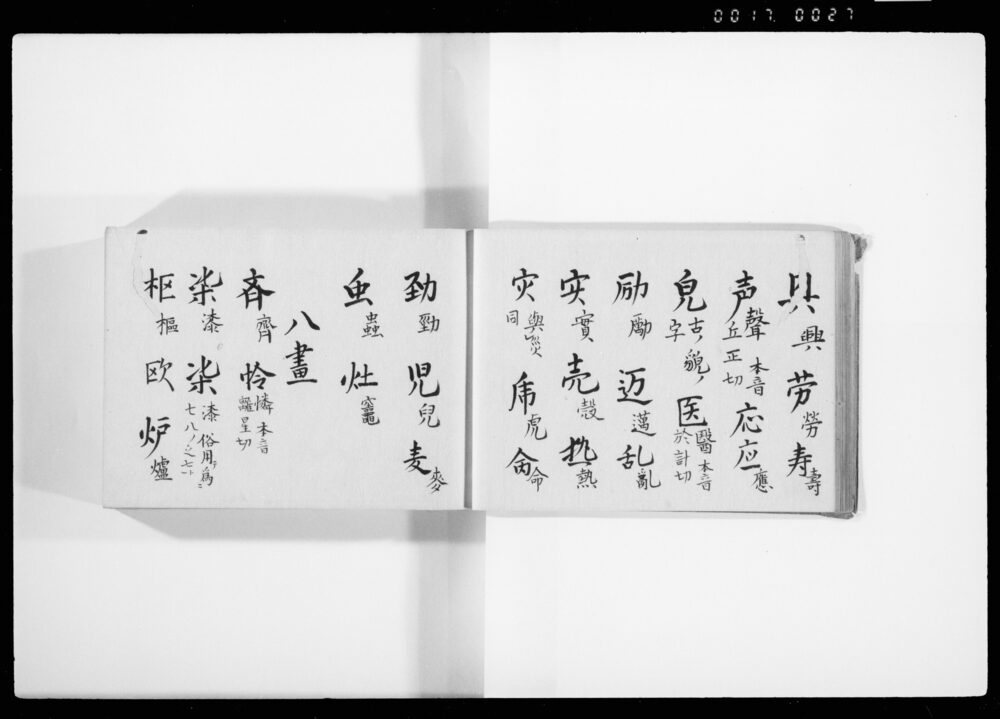 0017 0027
興 劳 勞 寿 壽
声 聲 本音 丘正切 応 应 應
皃 古貌ノ字 医 醫 本音 於計切
励 勵 迈 邁 乱 亂
実 實 売 殼 热 熱
灾 與災同 乕 虎 肏 命
劲 勁 児 兒 麦 麥
虫 蟲 灶 竈
八畫
斉 齊 怜 憐 本音 離星切
柒 漆 柒 漆 俗用テ為ニ七八ノ之七ト
枢 樞 欧 炉 爐